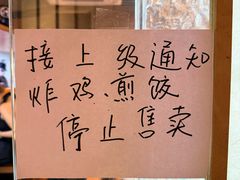 接上级通知
炸鸡、煎饺
停止售卖